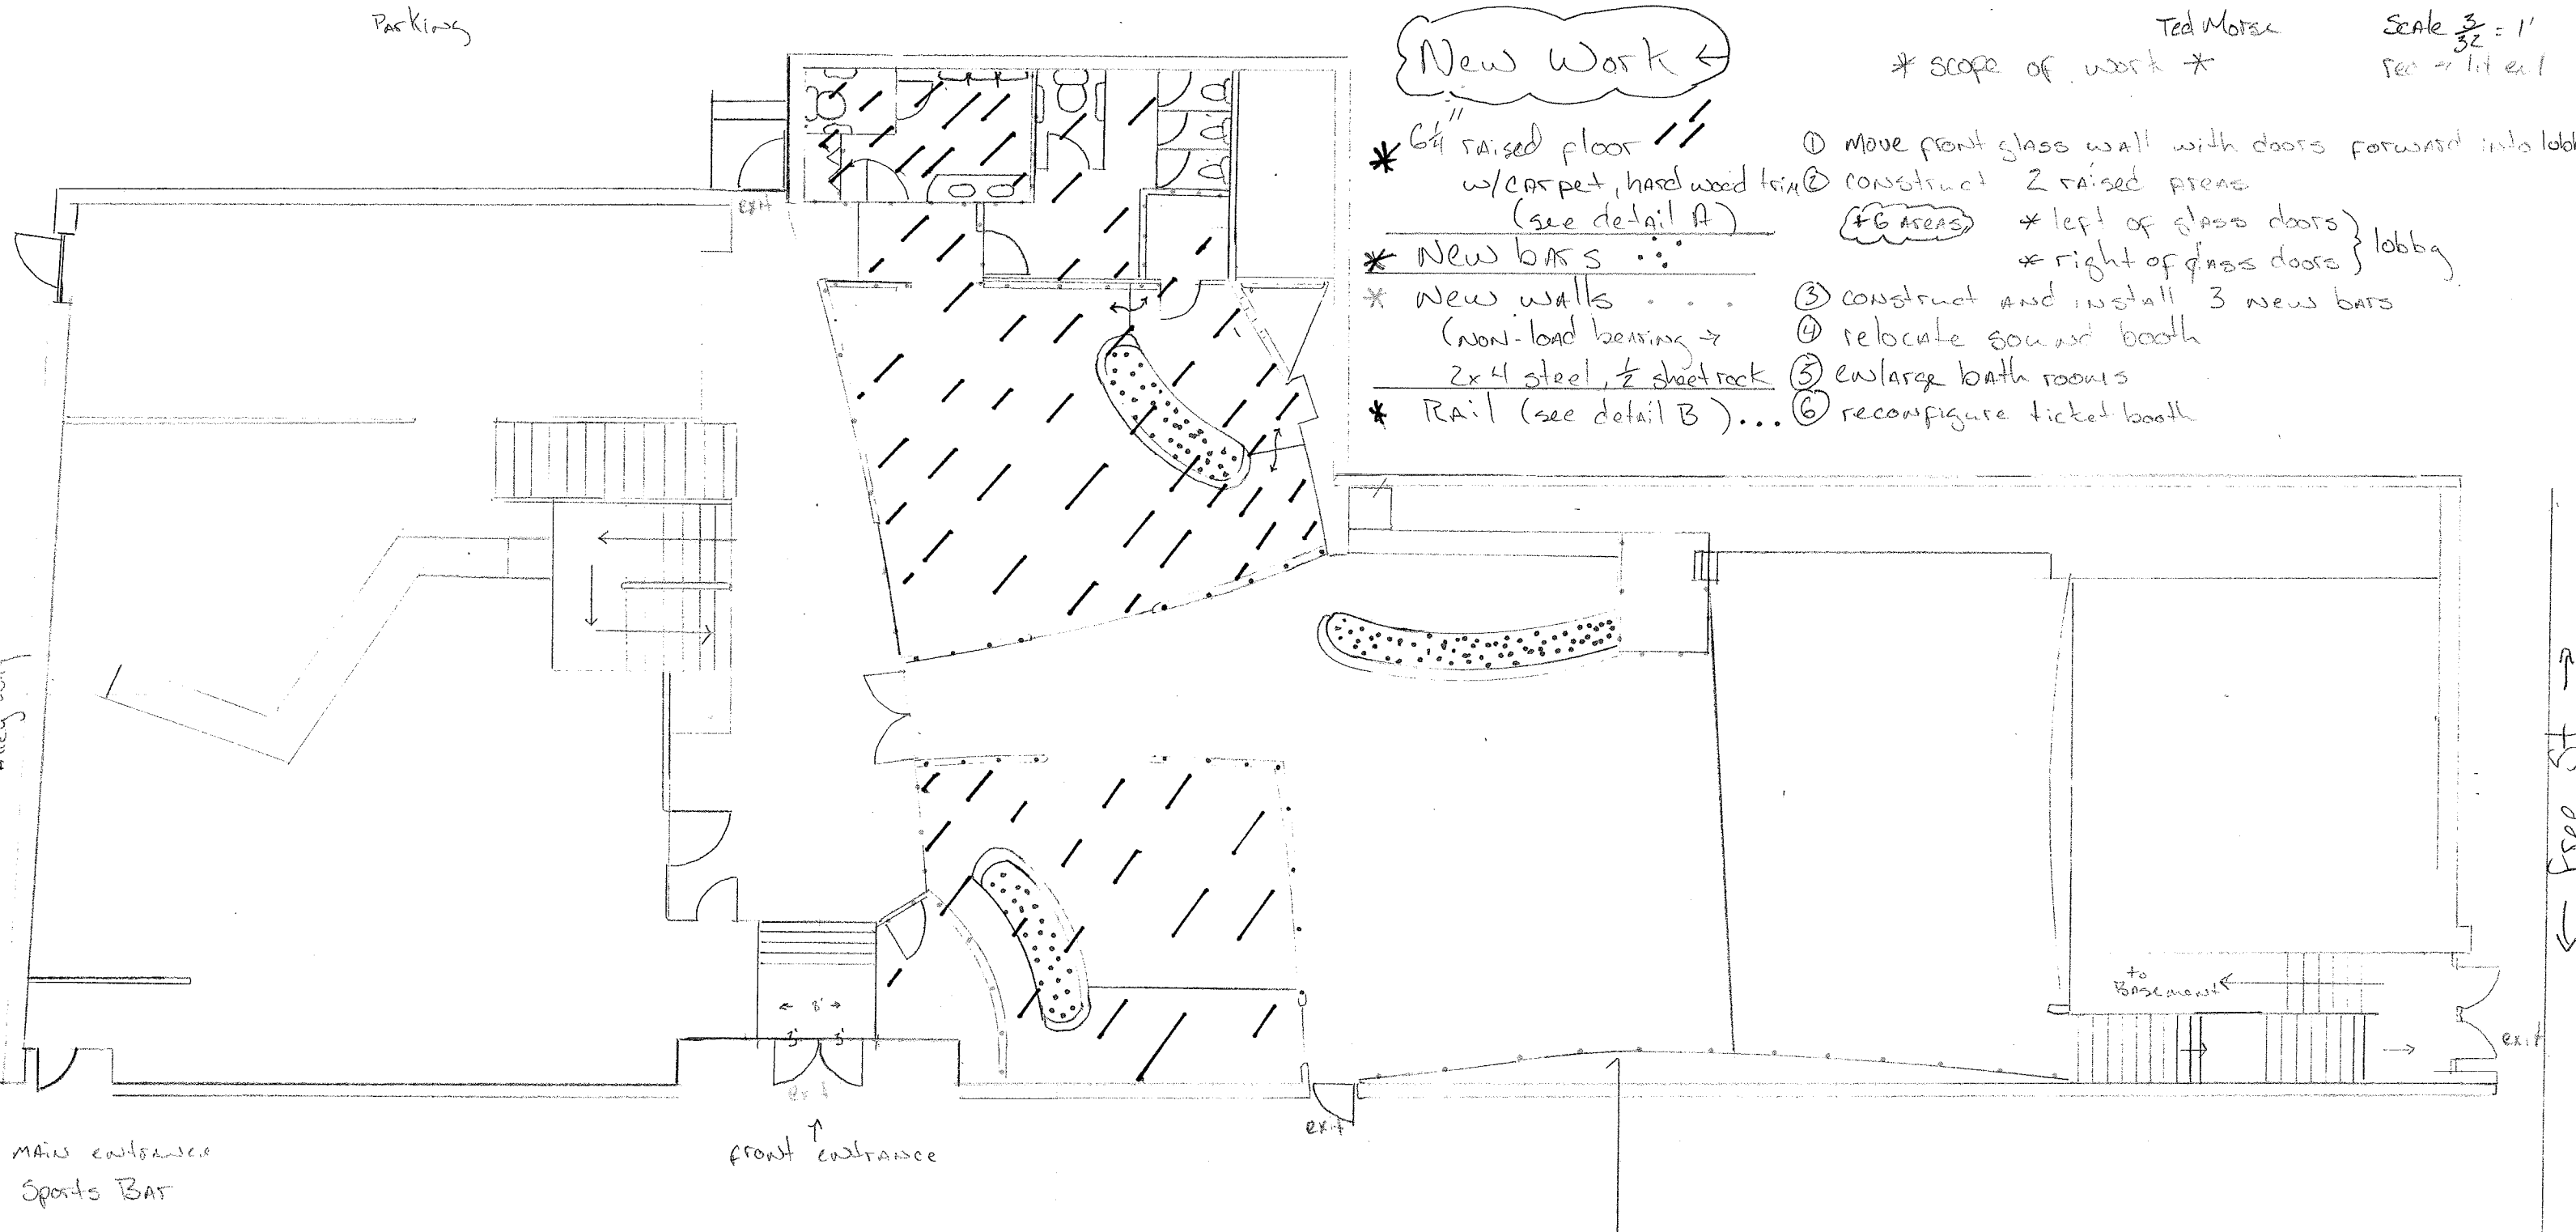 Parking
New Work ←
Ted Morse
Scale 3/32 = 1'
* scope of work *
* 6 1/4" raised floor
w/carpet, hard wood trim
(see detail A)
* New bars
* New walls
(non-load bearing →
2x4 steel, 1/2 sheetrock
* Rail (see detail B)...
① move front glass wall with doors forward into lobb
② construct 2 raised areas
* left of glass doors } lobby
* right of glass doors
③ construct and install 3 new bars
④ relocate sound booth
⑤ enlarge bath rooms
⑥ reconfigure ticket booth
exit
← 8' →
3' 3'
exit
↑
front entrance
exit
to
Basement
exit
← Free St →
Main entrance
Sports Bar